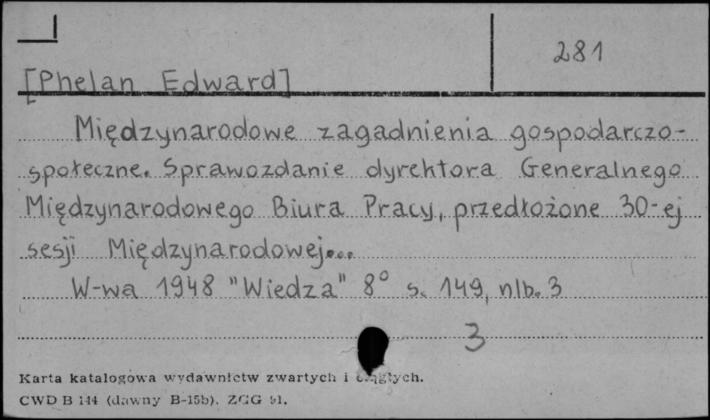 281
[Phelan Edward]
Międzynarodowe zagadnienia gospodarczo-
społeczne. Sprawozdanie dyrektora Generalnego
Międzynarodowego Biura Pracy, przedłożone 30-ej
sesji Międzynarodowej...
W-wa 1948 "Wiedza" 8° s. 149, nlb. 3
3
Karta katalogowa wydawnictw zwartych i ciągłych.
CWD B 144 (dawny B-15b). ZGG 91.